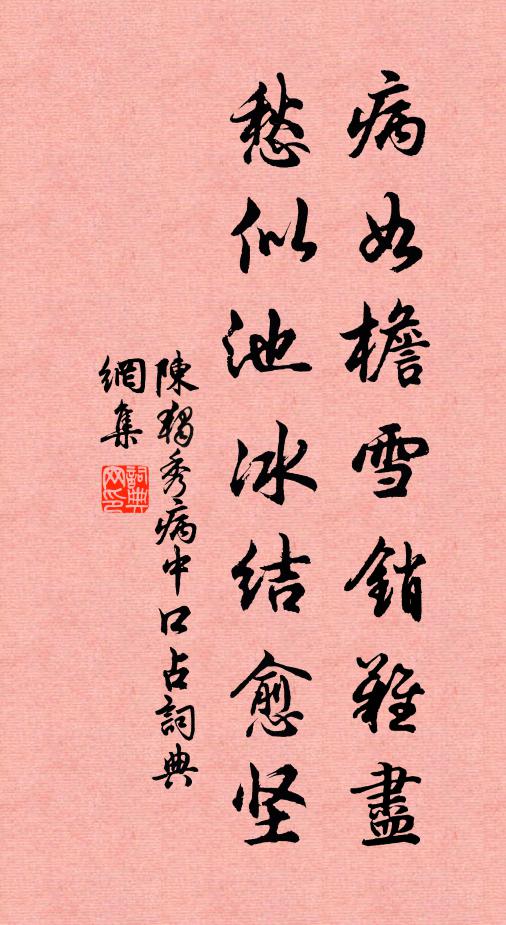 病如檐雪銷難盡
愁似池冰結愈坚
陳獨秀病中口占詞典
網集
詞典網印